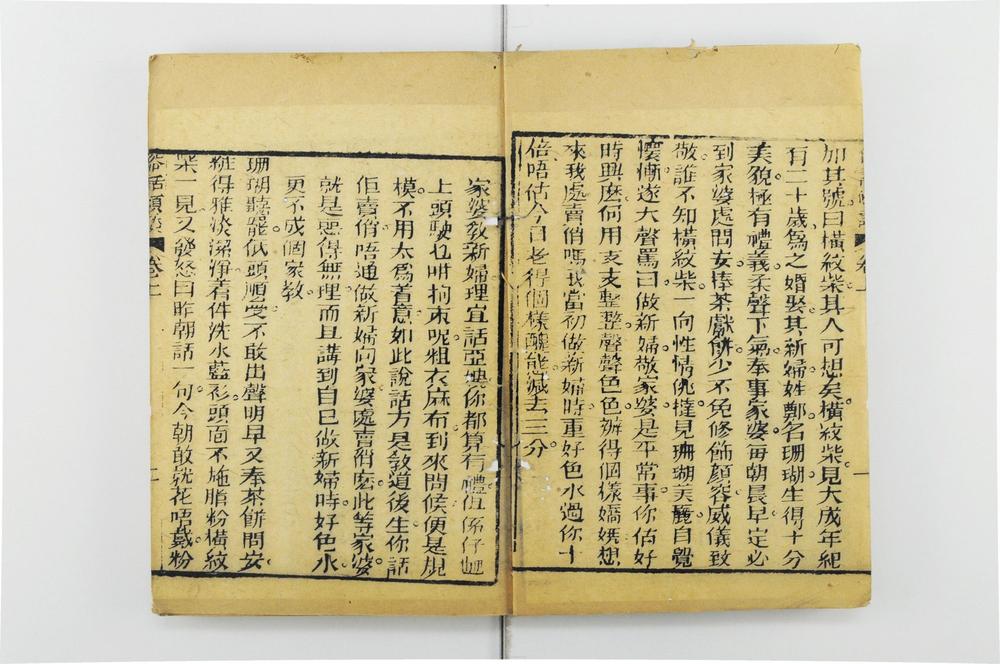 加其號曰橫紋柴其人可想矣橫紋柴見大成年紀
有二十歲爲之婚娶其新婦姓鄭名珊瑚生得十分
美貌極有禮義柔聲下氣奉事家婆每朝晨早定必
到家婆處問安捧茶獻餅少不免修飾顏容威儀致
敬誰不知橫紋柴一向性情㒓見珊瑚美麗自覺
懷慚遂大聲罵曰做新婦敬家婆是平常事你估好
時興麽何用支支整整聲聲色色辦得個樣嬌嬈想
來我處賣俏嗎我當初做新婦時重好色水過你十
倍唔估今日老得個樣醜能減去三分
家婆敎新婦理宜話亞你都算有禮但係仔乸
上頭駛乜咁拘束呢粗衣麻布到來問候便是規
模不用太爲着意如此說話方是敎道後生你話
佢賣俏唔通做新婦向家婆處賣俏麽此等家婆
就是惡得無理而且講到自己做新婦時好色水
更不成個家敎
珊瑚聽罷低頭順受不敢出聲明早又奉茶餅問安
粧得雅淡潔淨着件洗水藍衫頭面不施脂粉橫紋
柴一見又發怒曰昨朝話一句今朝敢就花唔戴粉
俗話傾談 卷